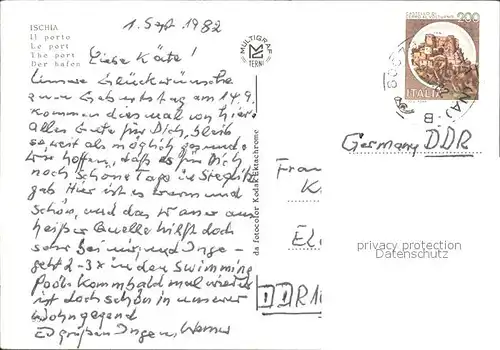 1. Sept 1982
ISCHIA
Il porto
Le port
The port
Der hafen
Liebe Käte!
Unsere Glückwünsche
zum Geburtstag am 14.9.
kommen diesmal von hier.
Alles Gute für Dich, bleib
so weit als möglich gesund.
Wir hoffen, daß es für Dich
noch schöne Tage in Steglitz
gab. Hier ist es warm und
schön, und das Wasser aus
heißer Quelle hilft doch
sehr bei mir und Inge
geht 2-3x in den Swimming
Pool. Komm bald mal wieder
ist doch schön in unserer
Wohngegend
Es grüßen Inge u. Werner
MULTIGRAF
TERNI
da fotocolor Kodak Ektachrome
CASTELLO DI
200
ITALIA
Germany DDR
Frau
K
El
DDR 1
privacy protection
Datenschutz